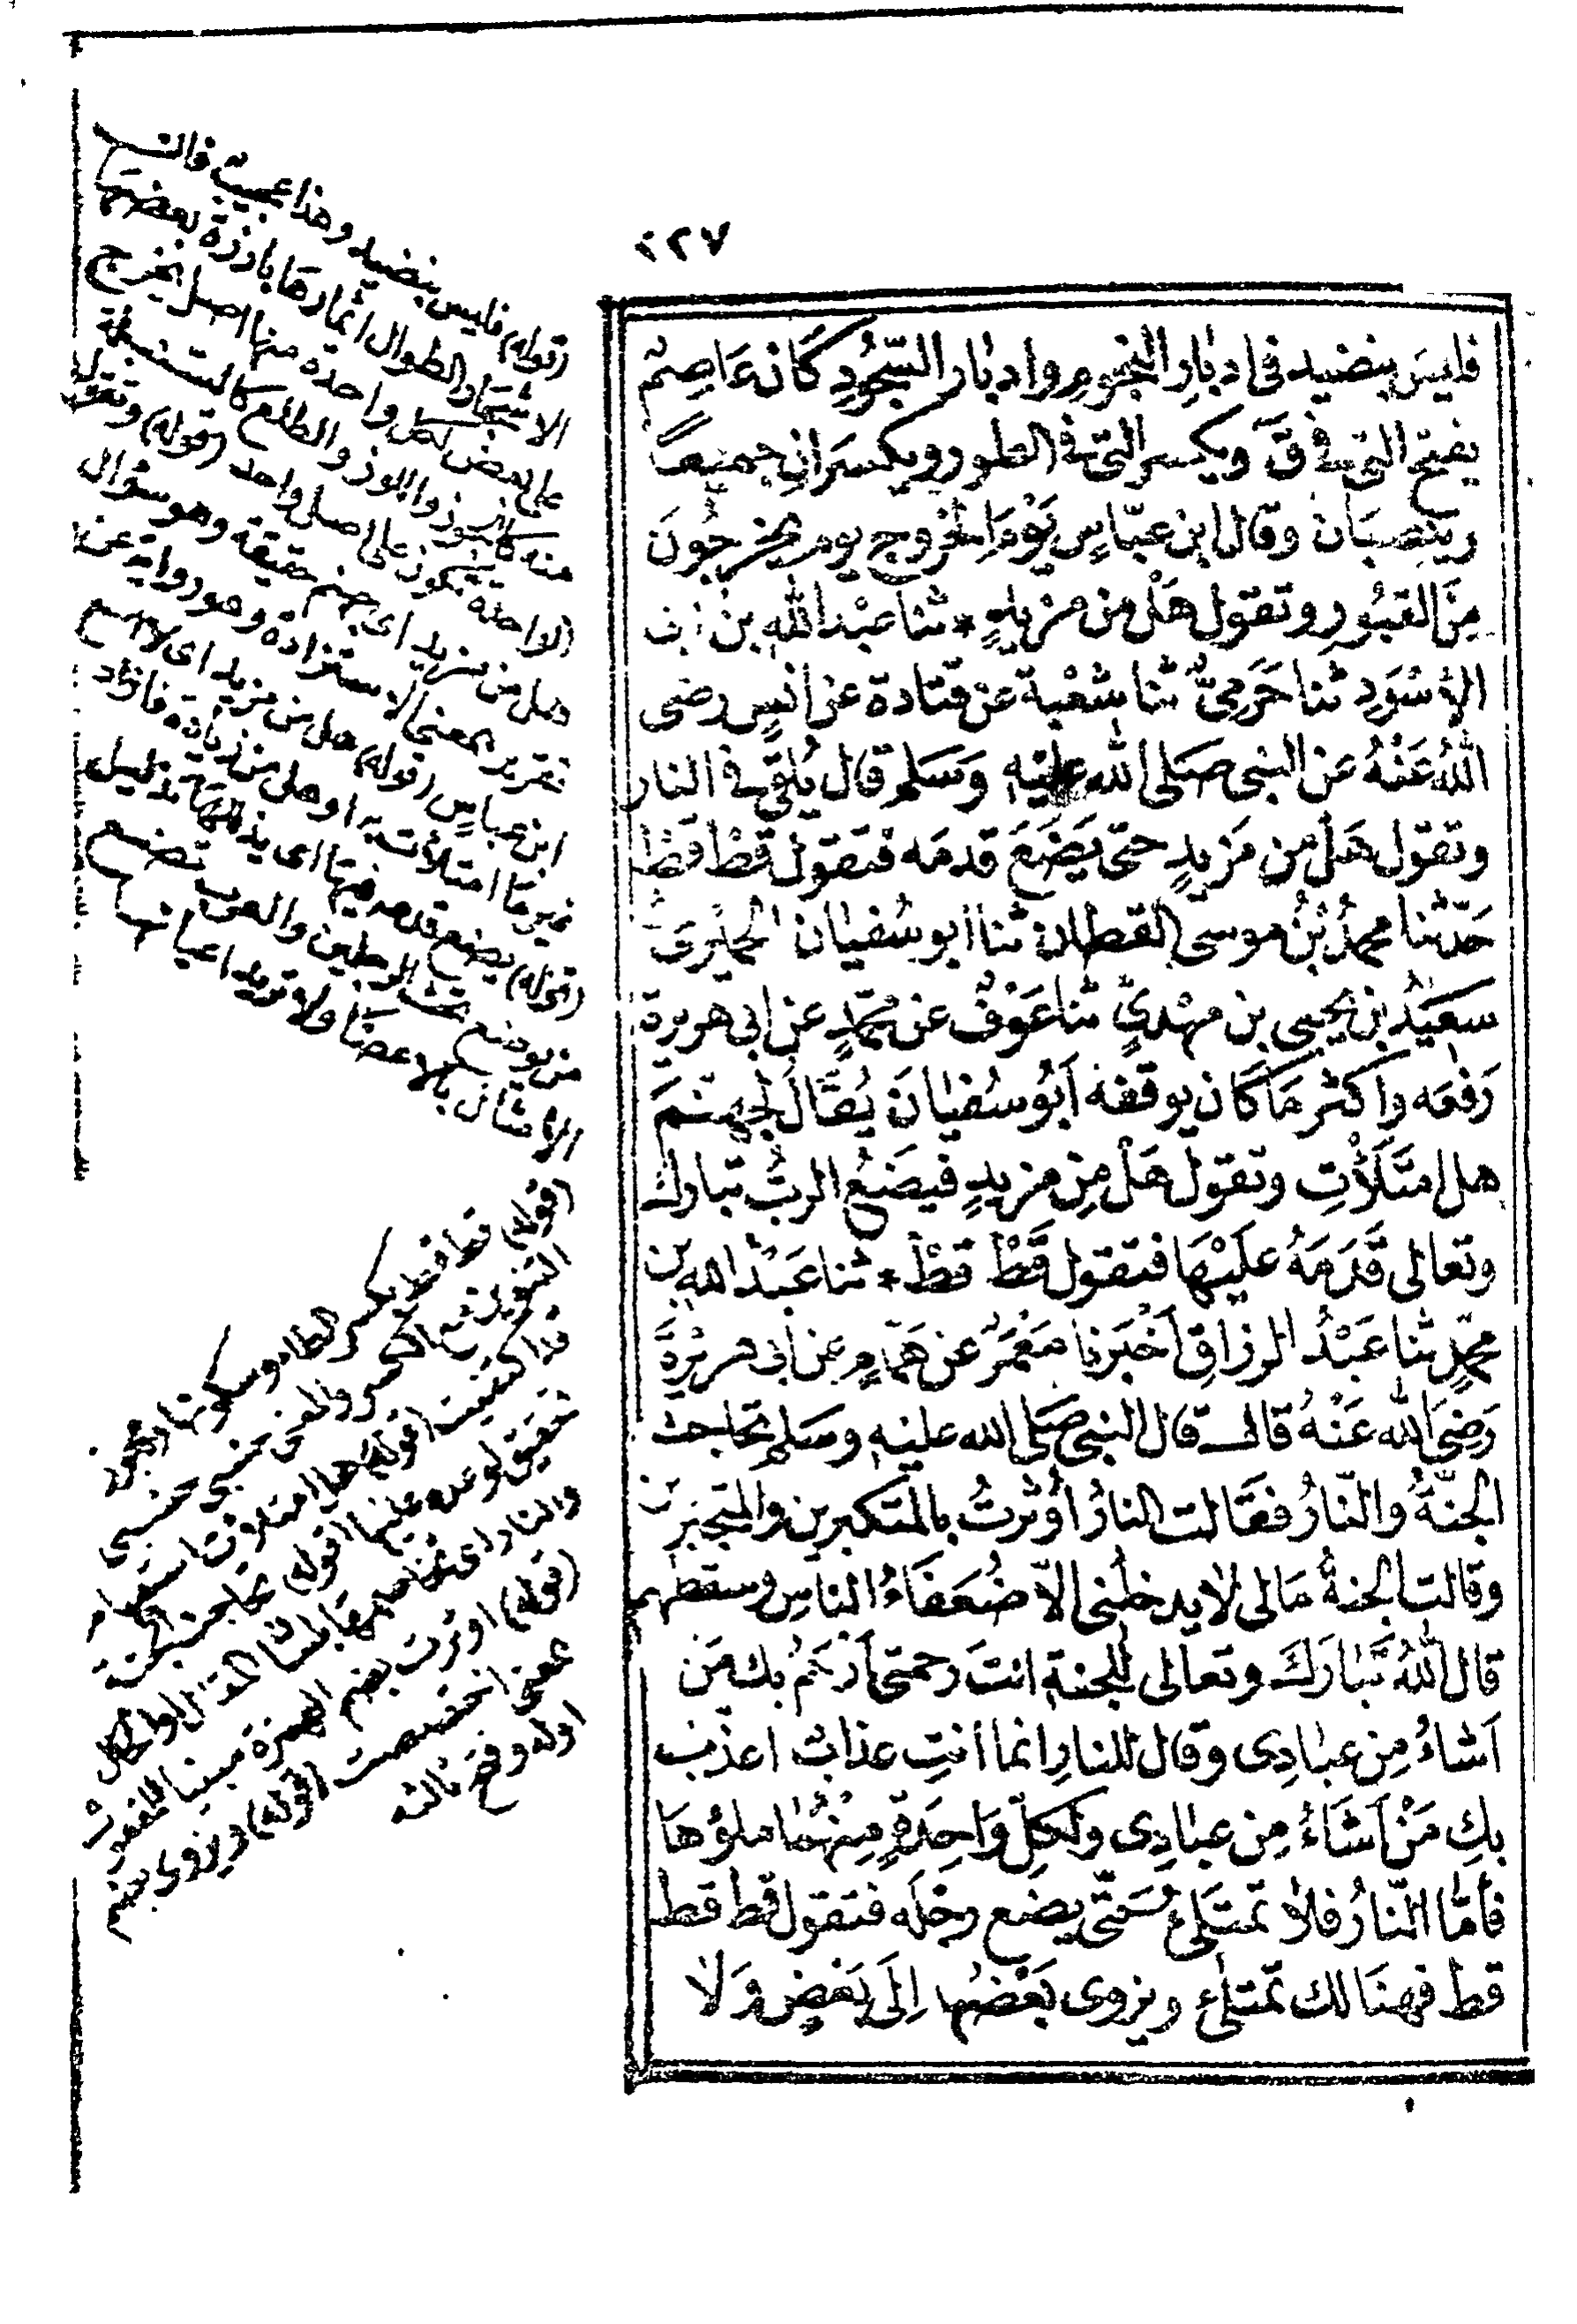 ٤٢٧
فليسَ بنضيد فى ادبارِ النجومِ وادبار السّجُودِ كَانَ عَاصِمٌ
يفتح التى فى قٓ ويكسر التى فى الطور ويكسَرانِ جميعًا
وينصبَان وقال ابن عبّاسٍ يَوْمَ الخروج يوم يخرجُونَ
مِنَ القبُورِ وتقول هَلْ من مزيدٍ * ثنا عبْد الله بن ابى
الاسْوَدِ ثنا حَرَمىٌّ ثنا شعْبة عن قتادة عن انسٍ رضى
اللهُ عَنْهُ عَن النبى صَلى الله عليْه وَسَلم قال يُلقى فى النار
وتقول هَلْ من مَزيدٍ حتى يَضَعَ قدمَه فتقول قطْ قطْ
حَدّثنا محمدُ بْنُ موسى القطان ثنا أبو سُفيان الحِمْيَرىُّ
سعيدُ ابن يحيى بن مهْدىٍّ ثنا عَوْفٌ عن محمّدٍ عن ابى هريرة
رَفعَه واكثر مَا كَان يوقفه اَبُو سُفيانَ يُقَالُ لجهنّمَ
هل امتَلَأْتِ وتقول هَلْ مِن مزيدٍ فيضَعُ الربُّ تبارك
وتعالى قَدَمَهُ علَيْهَا فتقول قَطْ قطْ * ثنا عَبْدُ الله بن
محمّدٍ ثنا عَبْدُ الرزاقِ اَخْبَرنا مَعْمَرٌ عن هَمّامٍ عن ابى هريْرَةَ
رَضِىَ الله عَنْهُ قال قال النبى صَلى الله عليْه وسَلم تحاجت
الجنّةُ والنّارُ فقَالت النارُ أُوثرتُ بالمتكبرين والمتجبرين
وقالت الجنةُ مَالى لا يدخلُنى الاّ ضُعَفَاءُ الناسِ وسقطهم
قال اللهُ تَبَارَكَ وتعالى للجنةِ انتَ رحمتى اَرْحَمُ بك مَن
اَشاءُ مِن عبَادِى وقال للنارِ انما أنتِ عذابٌ اعذّب
بكِ مَنْ اَشَاءُ مِن عبَادِى ولكلِّ وَاحِدَةٍ مِنْهُمَا ملؤهَا
فأمّا النّارُ فلا تمتَلئُ حَتّى يضَع رجْلَه فتقول قط قط
قط فهنَالك تمتلئ ويزوى بَعْضُهَا اِلَى بَعْضٍ وَلَا
(قوله) فليس بنضيد وهذا عجيب فان
الاشجار الطوال اثمارها بارزة بعضها
على بعض لكل واحدة منها اصل يخرج
منه كالجوز واللوز والطلع كالسنبلة
الواحدة يكون على اصل واحد (قوله) وتقول
هل من مزيد اى جهنم حقيقة وهو سؤال
تقرير بمعنى الاستزادة وهو رواية عن
ابن عباسٍ (قوله) هل من مزيد اى لا اسع
غير ما امتلأت به او هل من زيادة فازاد
(قوله) يضع قدمه فيها اى يذللها تذليل
من يوضع تحت الرجلين والعرب تضع
الامثال بالاعضاء ولا تريد اعيانها
(قوله) قط قط بكسر الطاء وسكونها ويجوز
التنوين مع الكسر والمعنى حسبى حسبى
قد اكتفيت (قوله) هل امتلأت استفهام
تحقيق لوعده بملئها (قوله) تحاجت الجنة
والنار اى تخاصمتا بلسان المقال او الحال
(قوله) اوثرت بضم الهمزة مبنيا للمفعول
بمعنى اختصصت (قوله) ويزوى بضم
اوله وفتح ثالثه